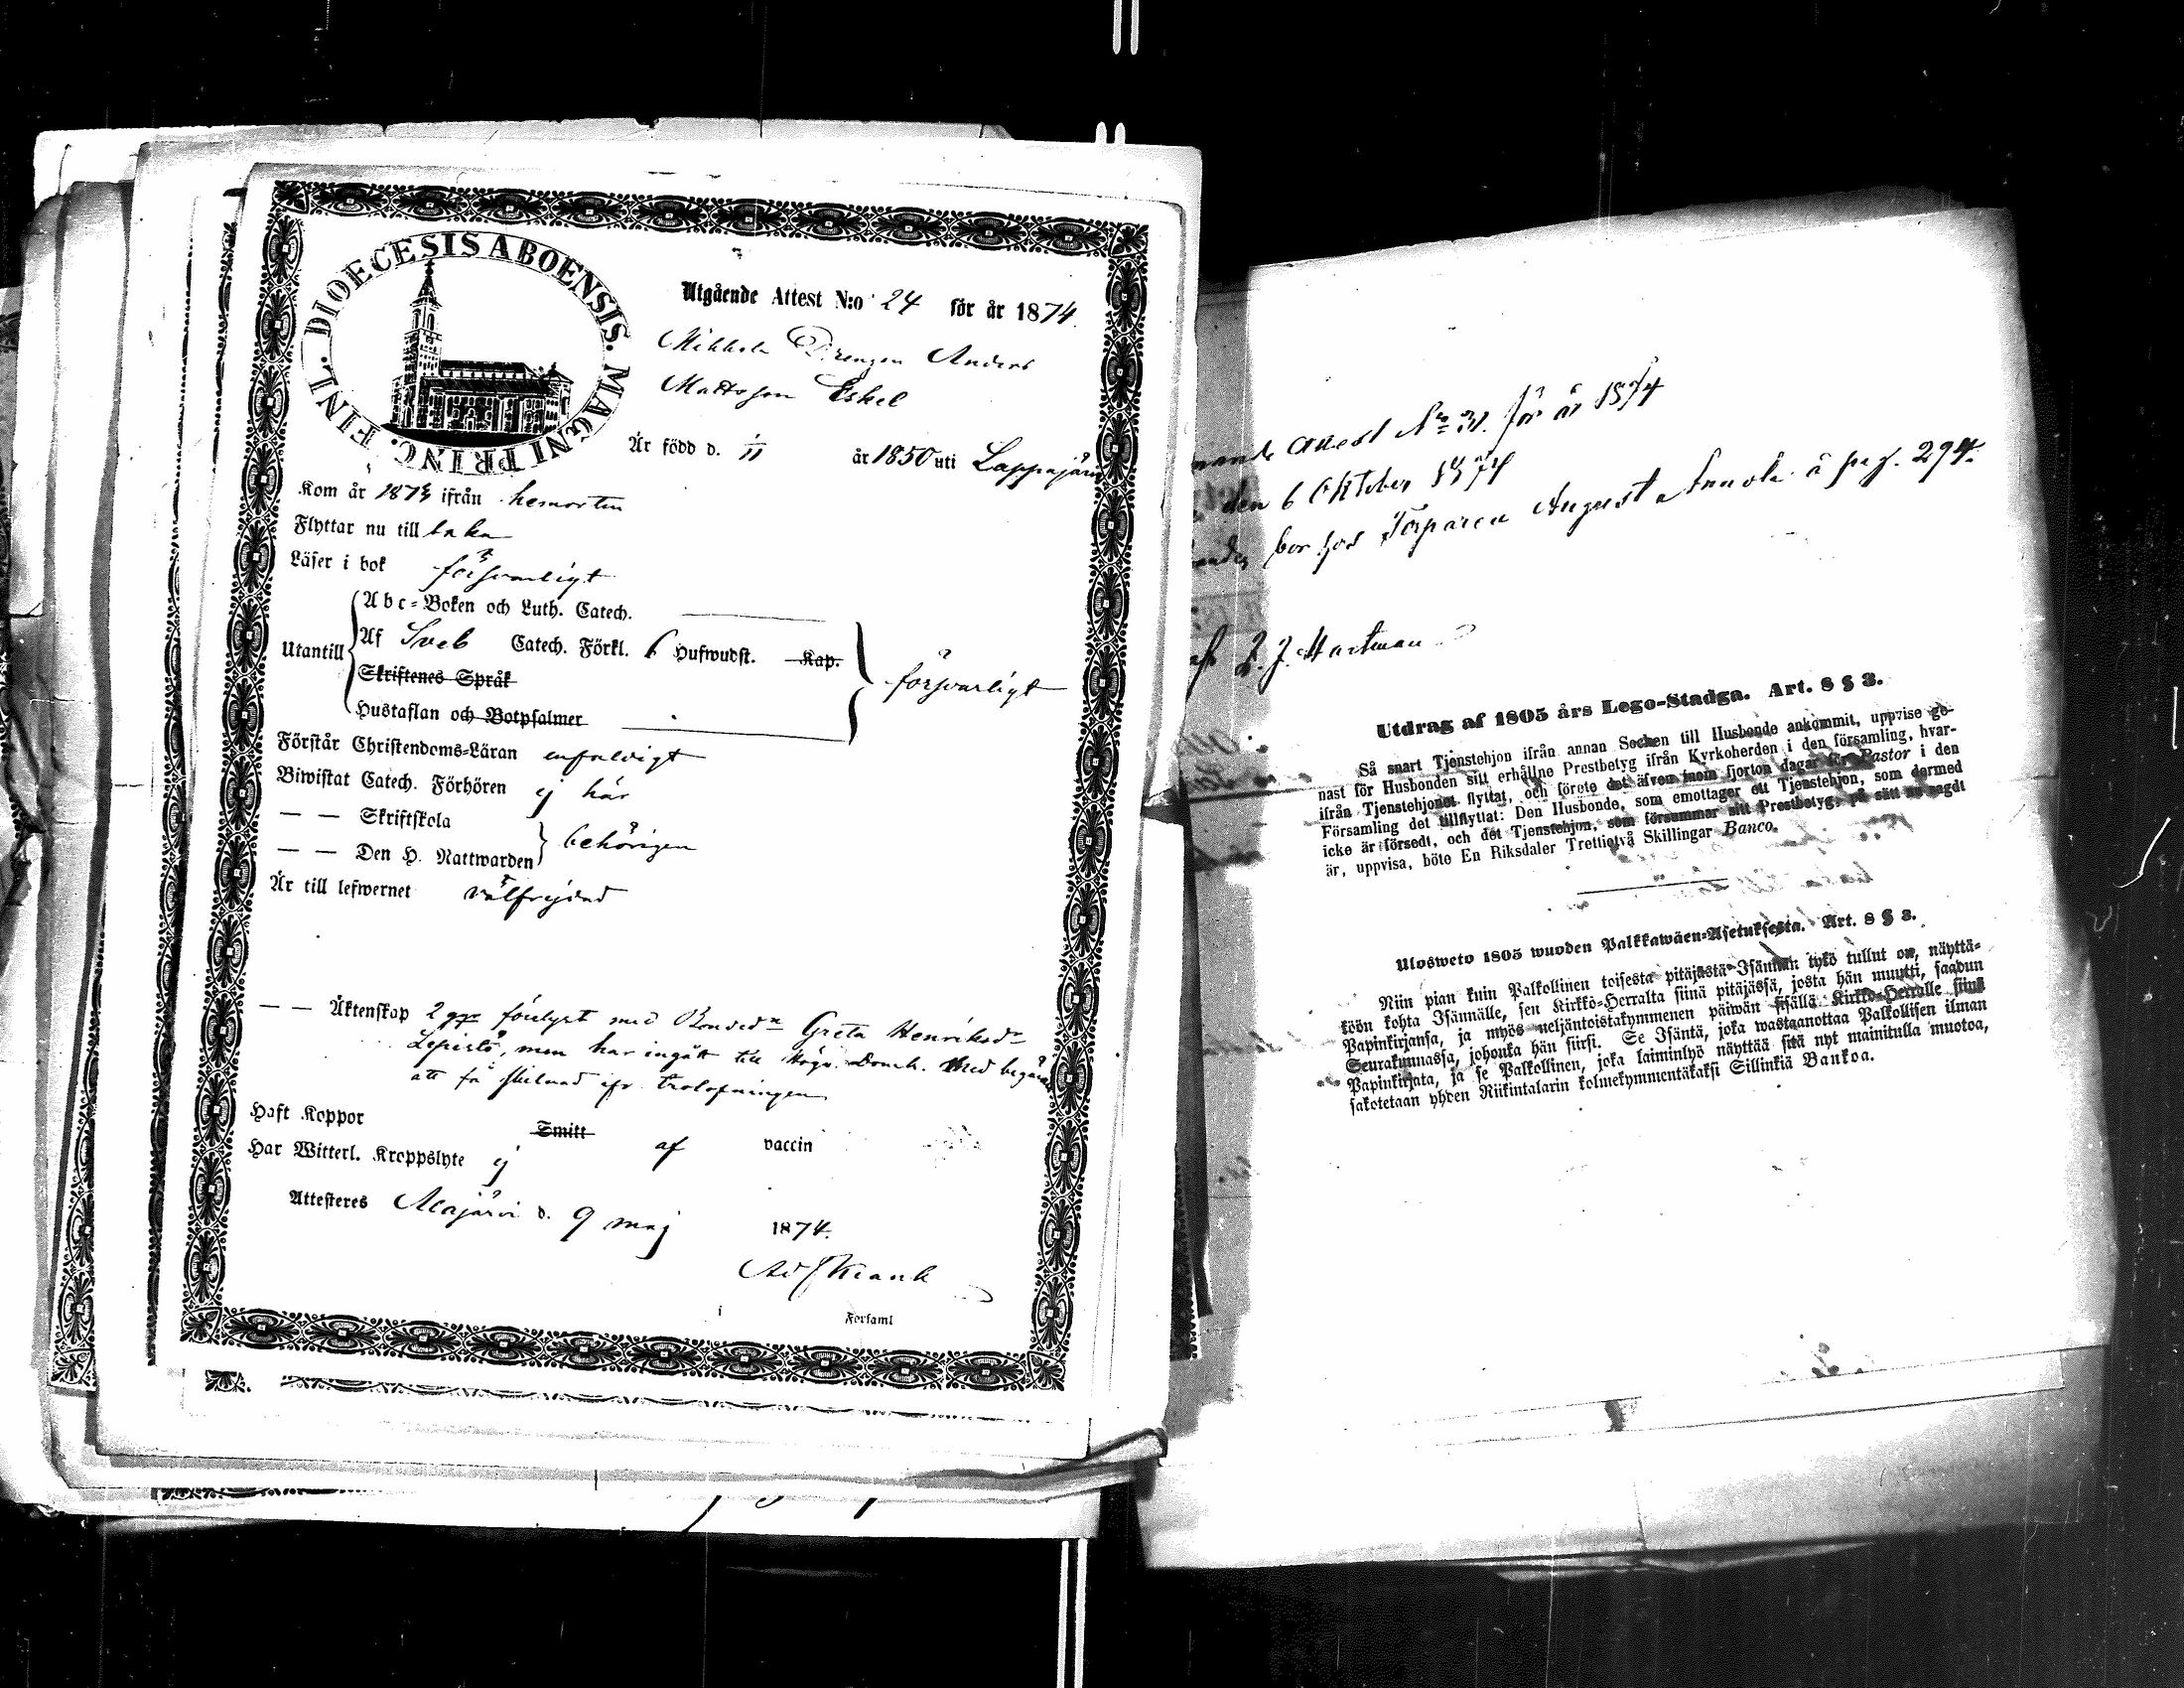 DIOECESIS ABOENSIS. MAGNI PRINC. FINL.
Utgående Attest N:o 24 för år 1874.
Drengen Anders
Mattsson Eskel
Är född d. 1/11 år 1850 uti Lappajärvi
Kom år 1873 ifrån hemorten
Flyttar nu till baka
Läser i bok försvarligt
Abc=Boken och Luth. Catech.
Utantill Af Sveb Catech. Förkl. 6 Hufwudst. Kap.
Skriftenes Språk
försvarligt
Hustaflan och Botpsalmer
Förstår Christendoms=Läran enfaldigt
Biwistat Catech. Förhören ej här
— — Skriftskola
behörigen
— — Den H. Nattwarden
Är till lefwernet välfrejdad
— — Äktenskap 2 förelyst med Greta Henriksdr
Lepistö, men har ingått till Högv. Domk. med begäran
att få skilnad ifr. trolofningen
Haft Koppor Smitt af vaccin
Har Witterl. Kroppslyte ej
Attesteres Alajärvi d. 9 maj 1874.
i Forsaml
Attest No 31. för år 1874
den 6 Oktober 1874
bor hos Torparen August Annola å pag. 294.
L. J. Hartman
Utdrag af 1805 års Lego-Stadga. Art. 8 § 3.
Så snart Tjenstehjon ifrån annan Socken till Husbonde ankommit, uppvise ge-
nast för Husbonden sitt erhållne Prestbetyg ifrån Kyrkoherden i den församling, hvar-
ifrån Tjenstehjonet flyttat, och förete det äfven inom fjorton dagar för Pastor i den
Församling det tillflyttat: Den Husbonde, som emottager ett Tjenstehjon, som dermed
icke är försedt, och det Tjenstehjon, som försummar sitt Prestbetyg, på sätt nu sagdt
är, uppvisa, böte En Riksdaler Trettiotvå Skillingar Banco.
Ulosweto 1805 wuoden Palkkawäen=Asetuksesta. Art. 8 § 3.
Niin pian kuin Palkollinen toisesta pitäjästä Isännän tykö tullut on, näyttä-
köön kohta Isännälle, sen Kirkko=Herralta siinä pitäjässä, josta hän muutti, saadun
Papinkirjansa, ja myös neljäntoistakymmenen päiwän sisällä Kirkko=Herralle siinä
Seurakunnassa, johonka hän siirsi. Se Isäntä, joka wastaanottaa Palkollisen ilman
Papinkirjata, ja se Palkollinen, joka laiminlyö näyttää sitä nyt mainitulla muotoa,
sakotetaan yhden Riikintalarin kolmekymmentäkaksi Sillinkiä Bankoa.